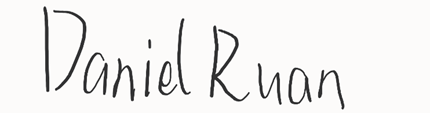 Daniel Ruan